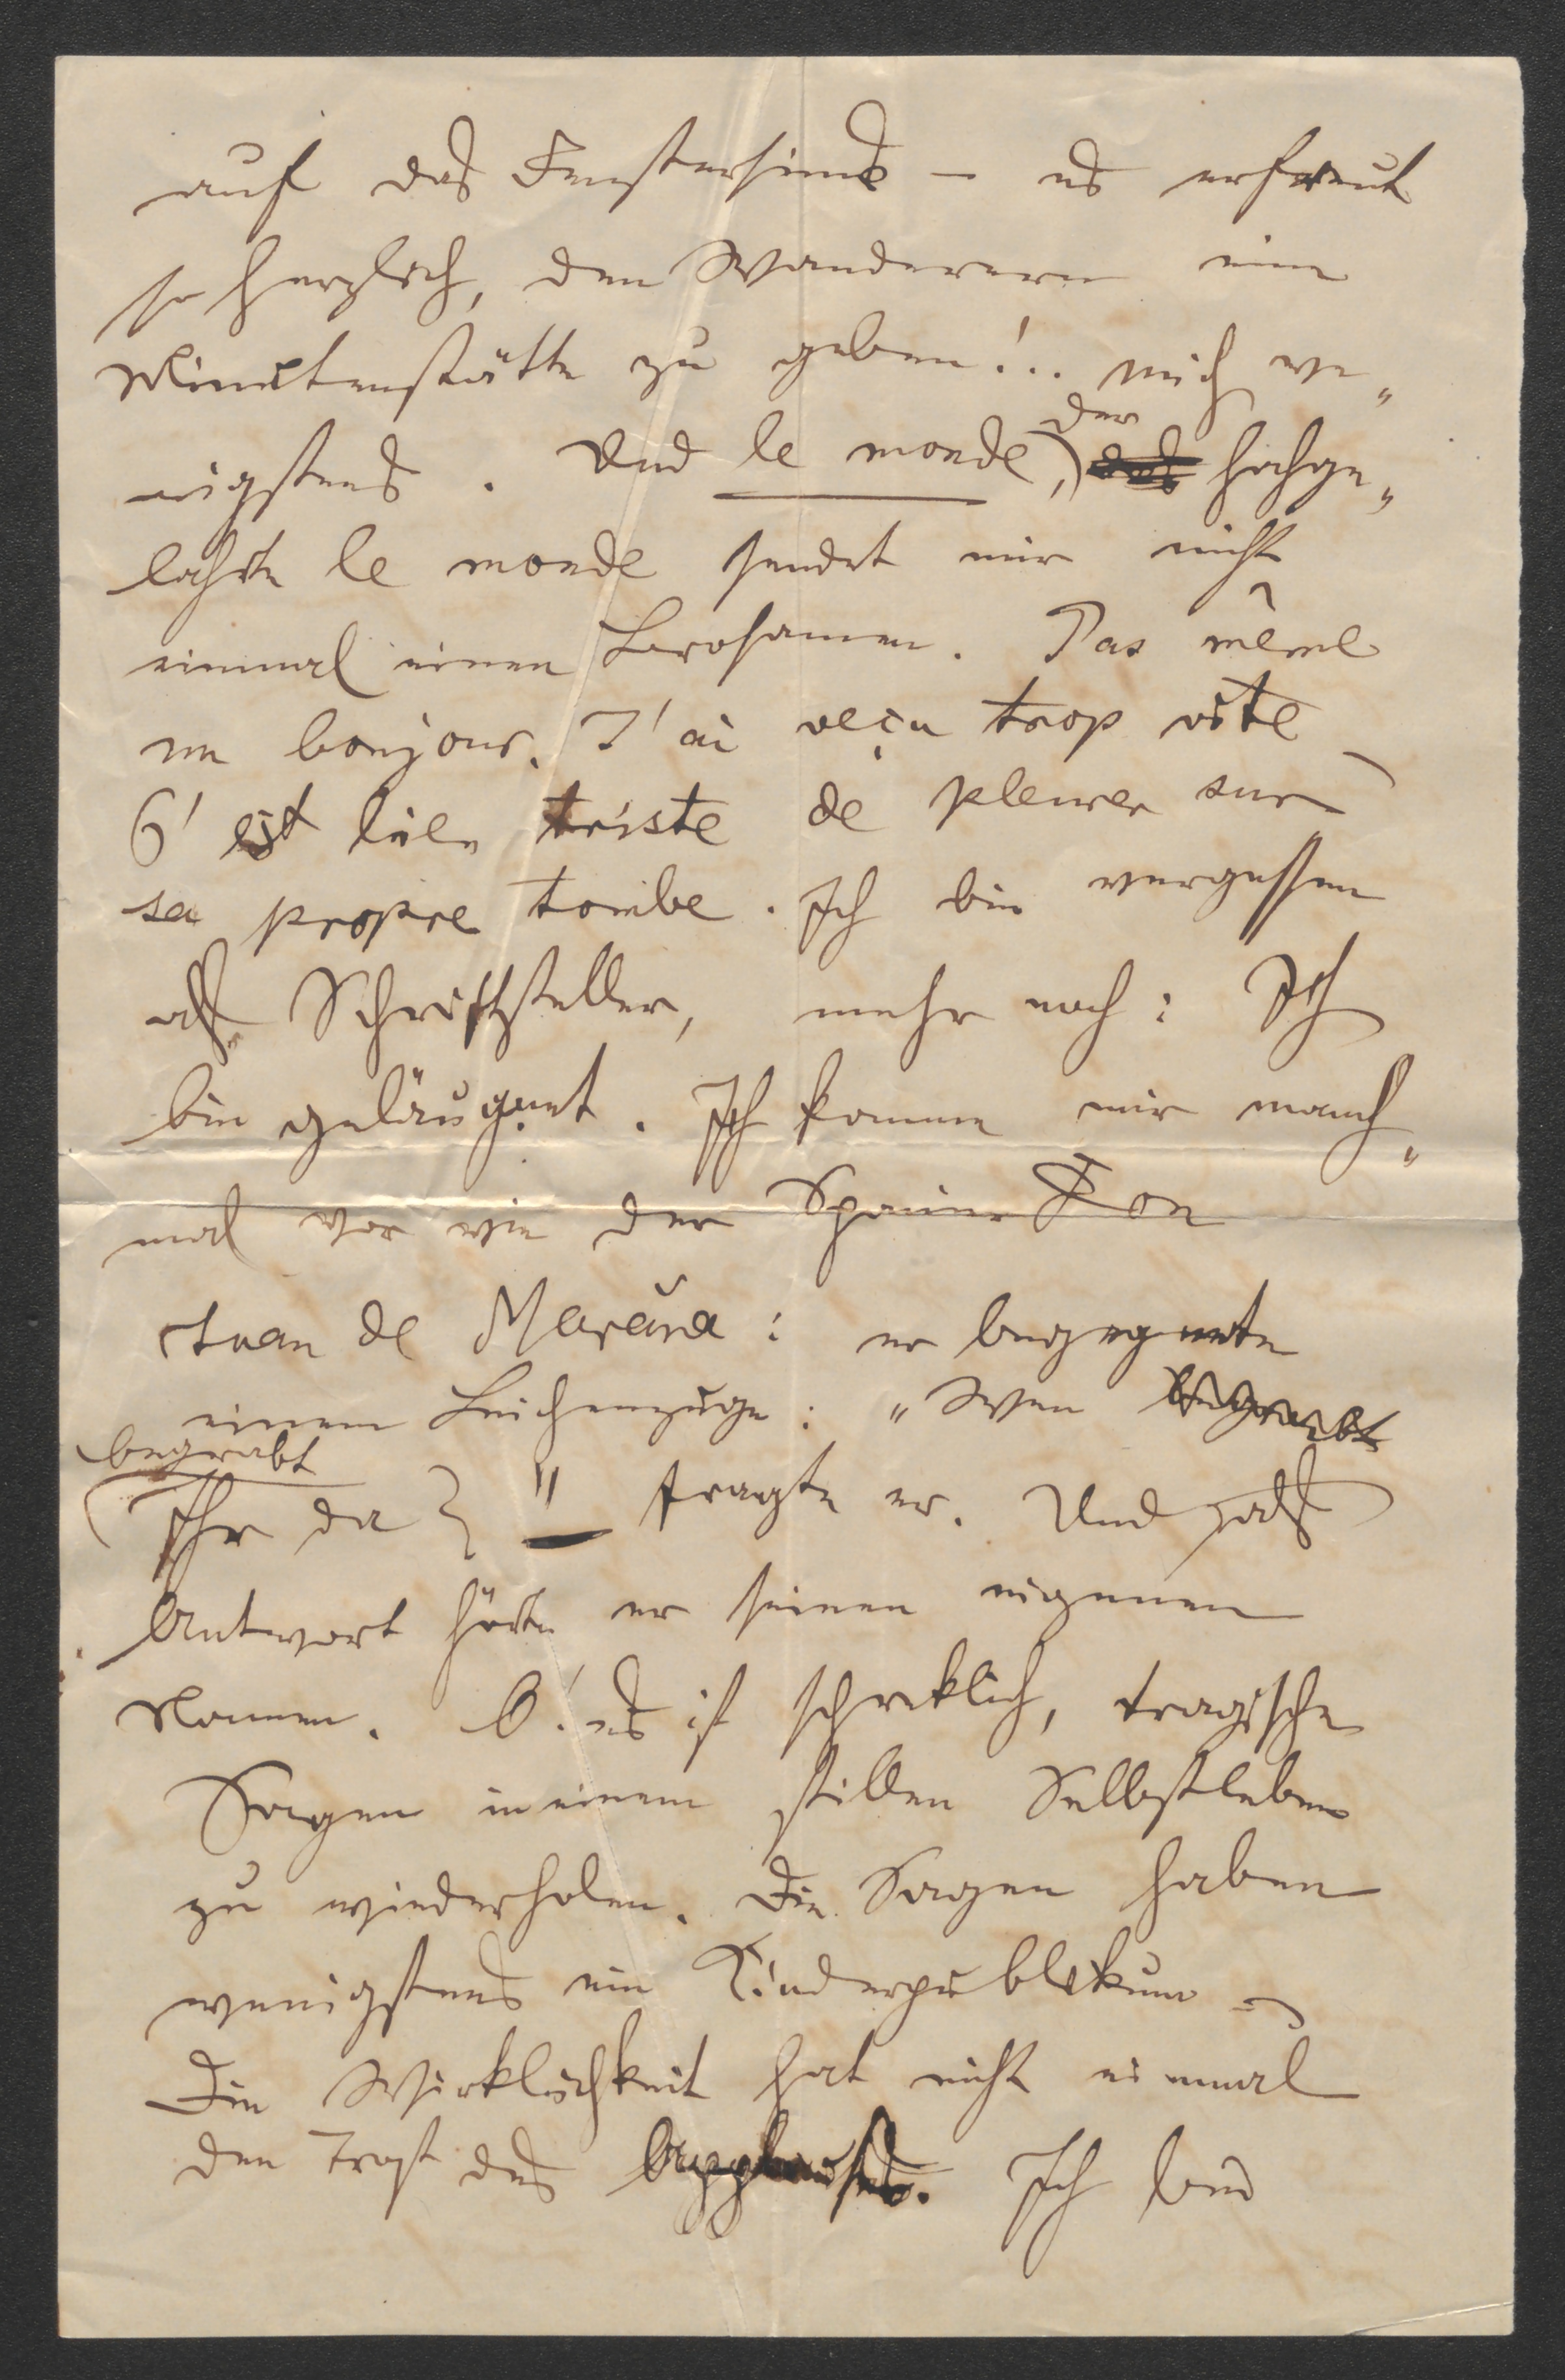 auf das Fenstersims – es erfreut
so herzlich, den Wanderern eine
Minutenstätte zu geben!.. mich we„
nigstens. Und le monde, der hochge„
lahrte le monde sendet mir nicht
einmal einen Brosamen. Pas même
un bonjour. J'ai veçu trop vite
C'est bien triste de pleurer sur
sa propre tombe. Ich bin vergessen
als Schriftsteller, mehr noch: Ich
bin geläugnet. Ich komme mir manch„
mal vor wie der Spanier Don
Juan de Maraña: er begegnete
einem Leichenzuge: „Wen begrabt
Ihr da?" – fragte er. Und als
Antwort hörte er seinen eigenen
Namen. O! es ist schreklich, tragische
Sagen in einem stillen Selbstleben
zu wiederholen. Die Sagen haben
wenigstens ein Kinderpublikum –
Die Wirklichkeit hat nicht einmal
den Trost des Applauses. Ich bin